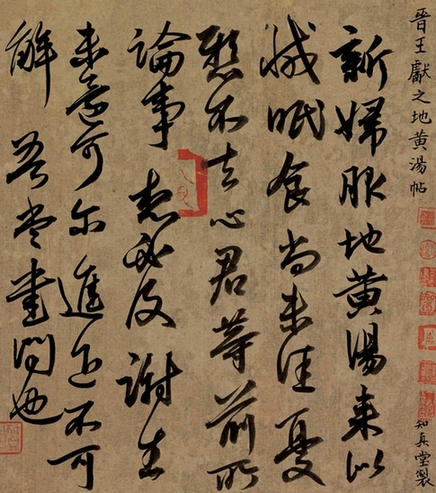 晉王獻之地黄湯帖
新婦服地黄湯来似
減眠食尚未佳憂
懸不去心君等前所
論事想必及謝生
未還可尔進退不可
解吾當書問也
知真堂製